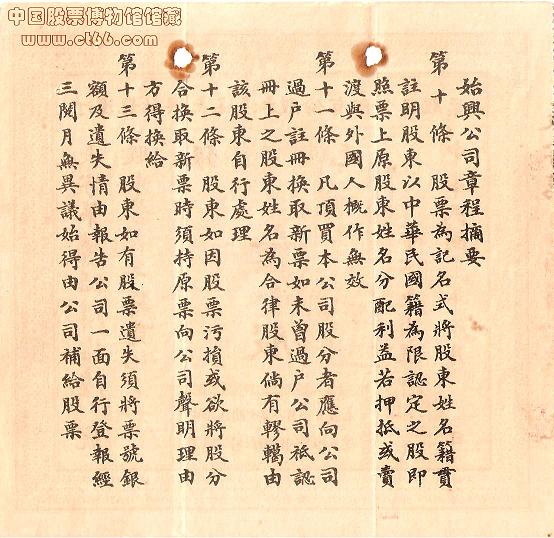 中国股票博物馆馆藏
www.cl66.com
始興公司章程摘要
第十條 股票為記名式將股東姓名籍貫
註明股東以中華民國籍為限認定之股即
照票上原股東姓名分配利益若押抵或賣
渡與外國人概作無效
第十一條 凡頂買本公司股分者應向公司
過戶註冊換取新票如未曾過戶公司祗認
冊上之股東姓名為合律股東倘有轇轕由
該股東自行處理
第十二條 股東如因股票污損或欲將股分
合換取新票時須持原票向公司聲明理由
方得換給
第十三條 股東如有股票遺失須將票號銀
額及遺失情由報告公司一面自行登報經
三閱月無異議始得由公司補給股票